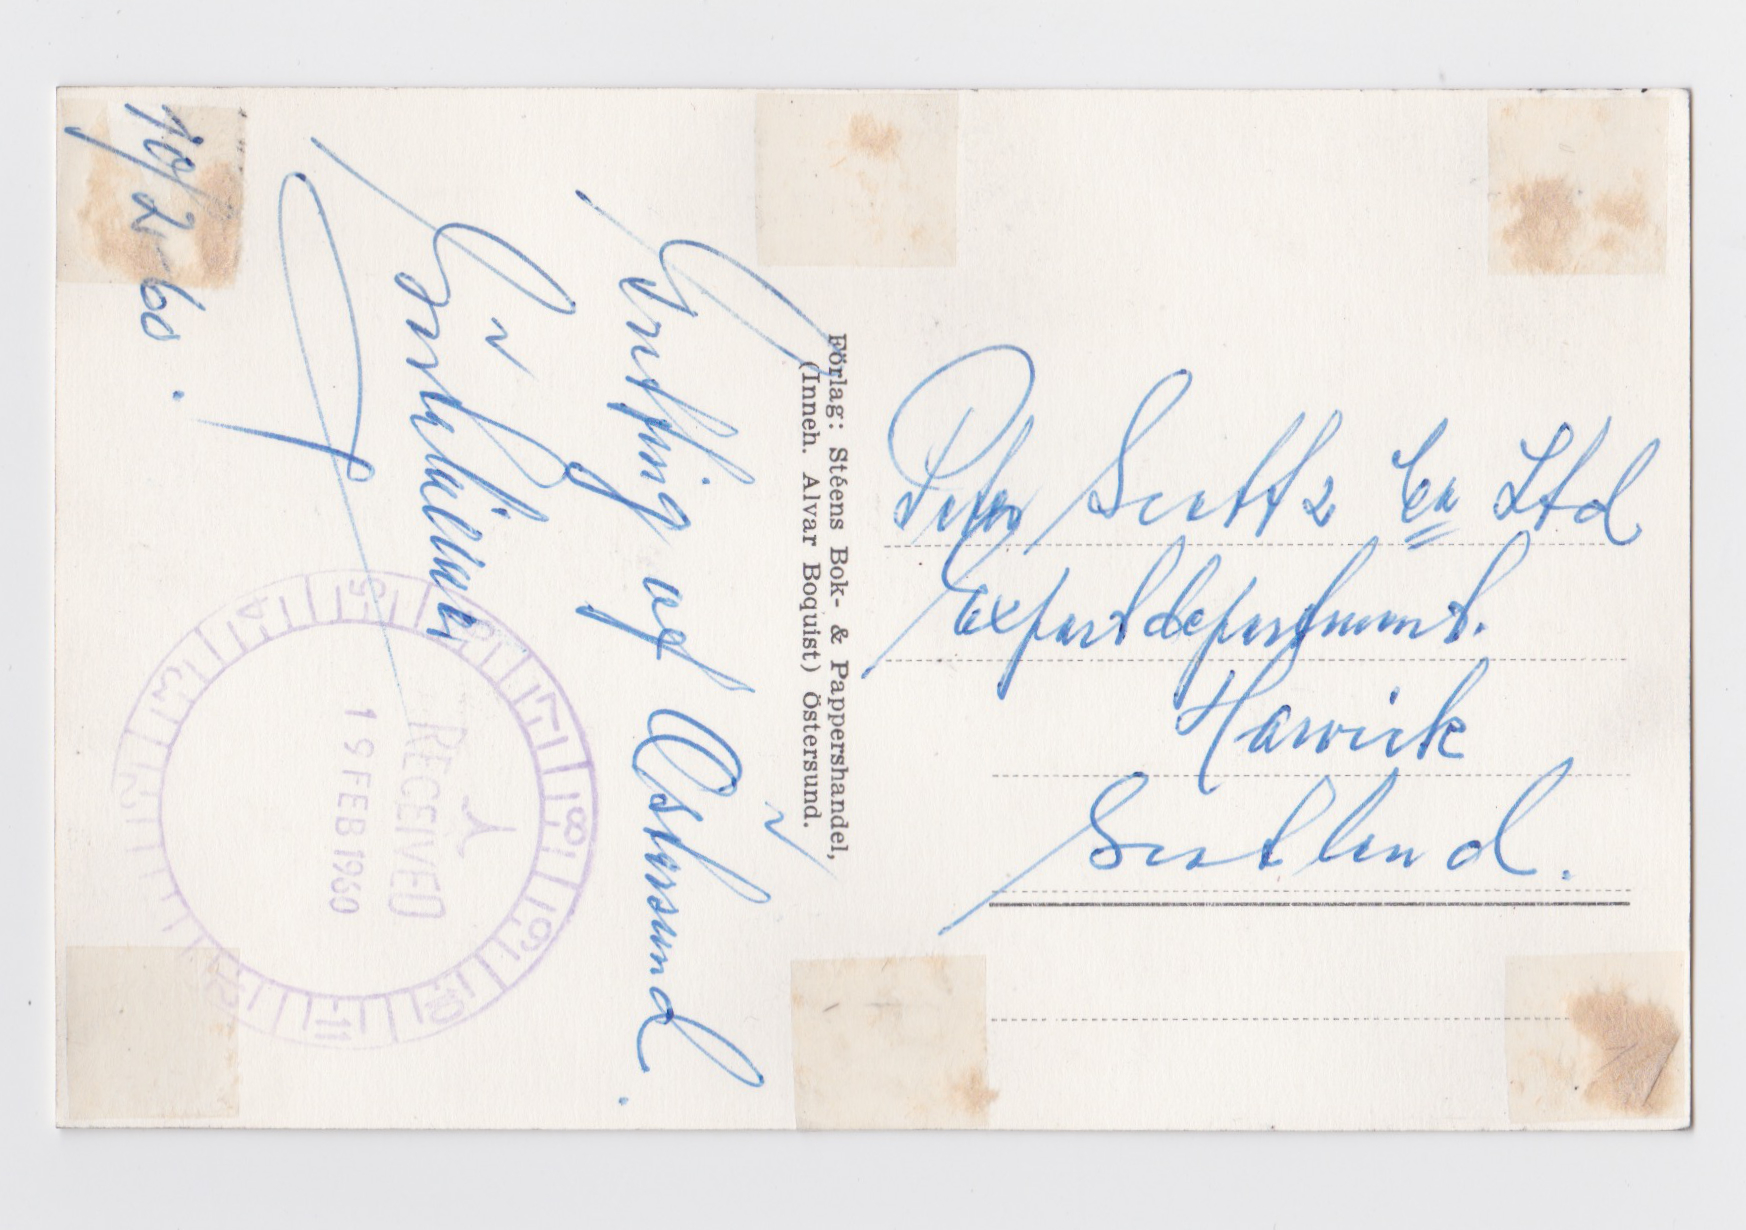 10/2-60.
Grifting af Östersund.
Förlag: Stéens Bok- & Pappershandel,
(Inneh. Alvar Boquist) Östersund.
RECEIVED
19 FEB 1960
3 4 5 7 8 9 11
Peter Scott & Co Ltd
Exportdepartment.
Hawick
Scotland.